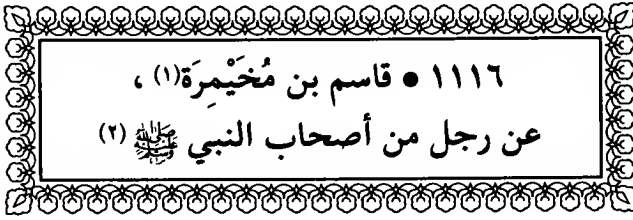 ١١١٦ • قاسم بن مُخَيْمِرَة(١) ،
عن رجل من أصحاب النبي ﷺ (٢)